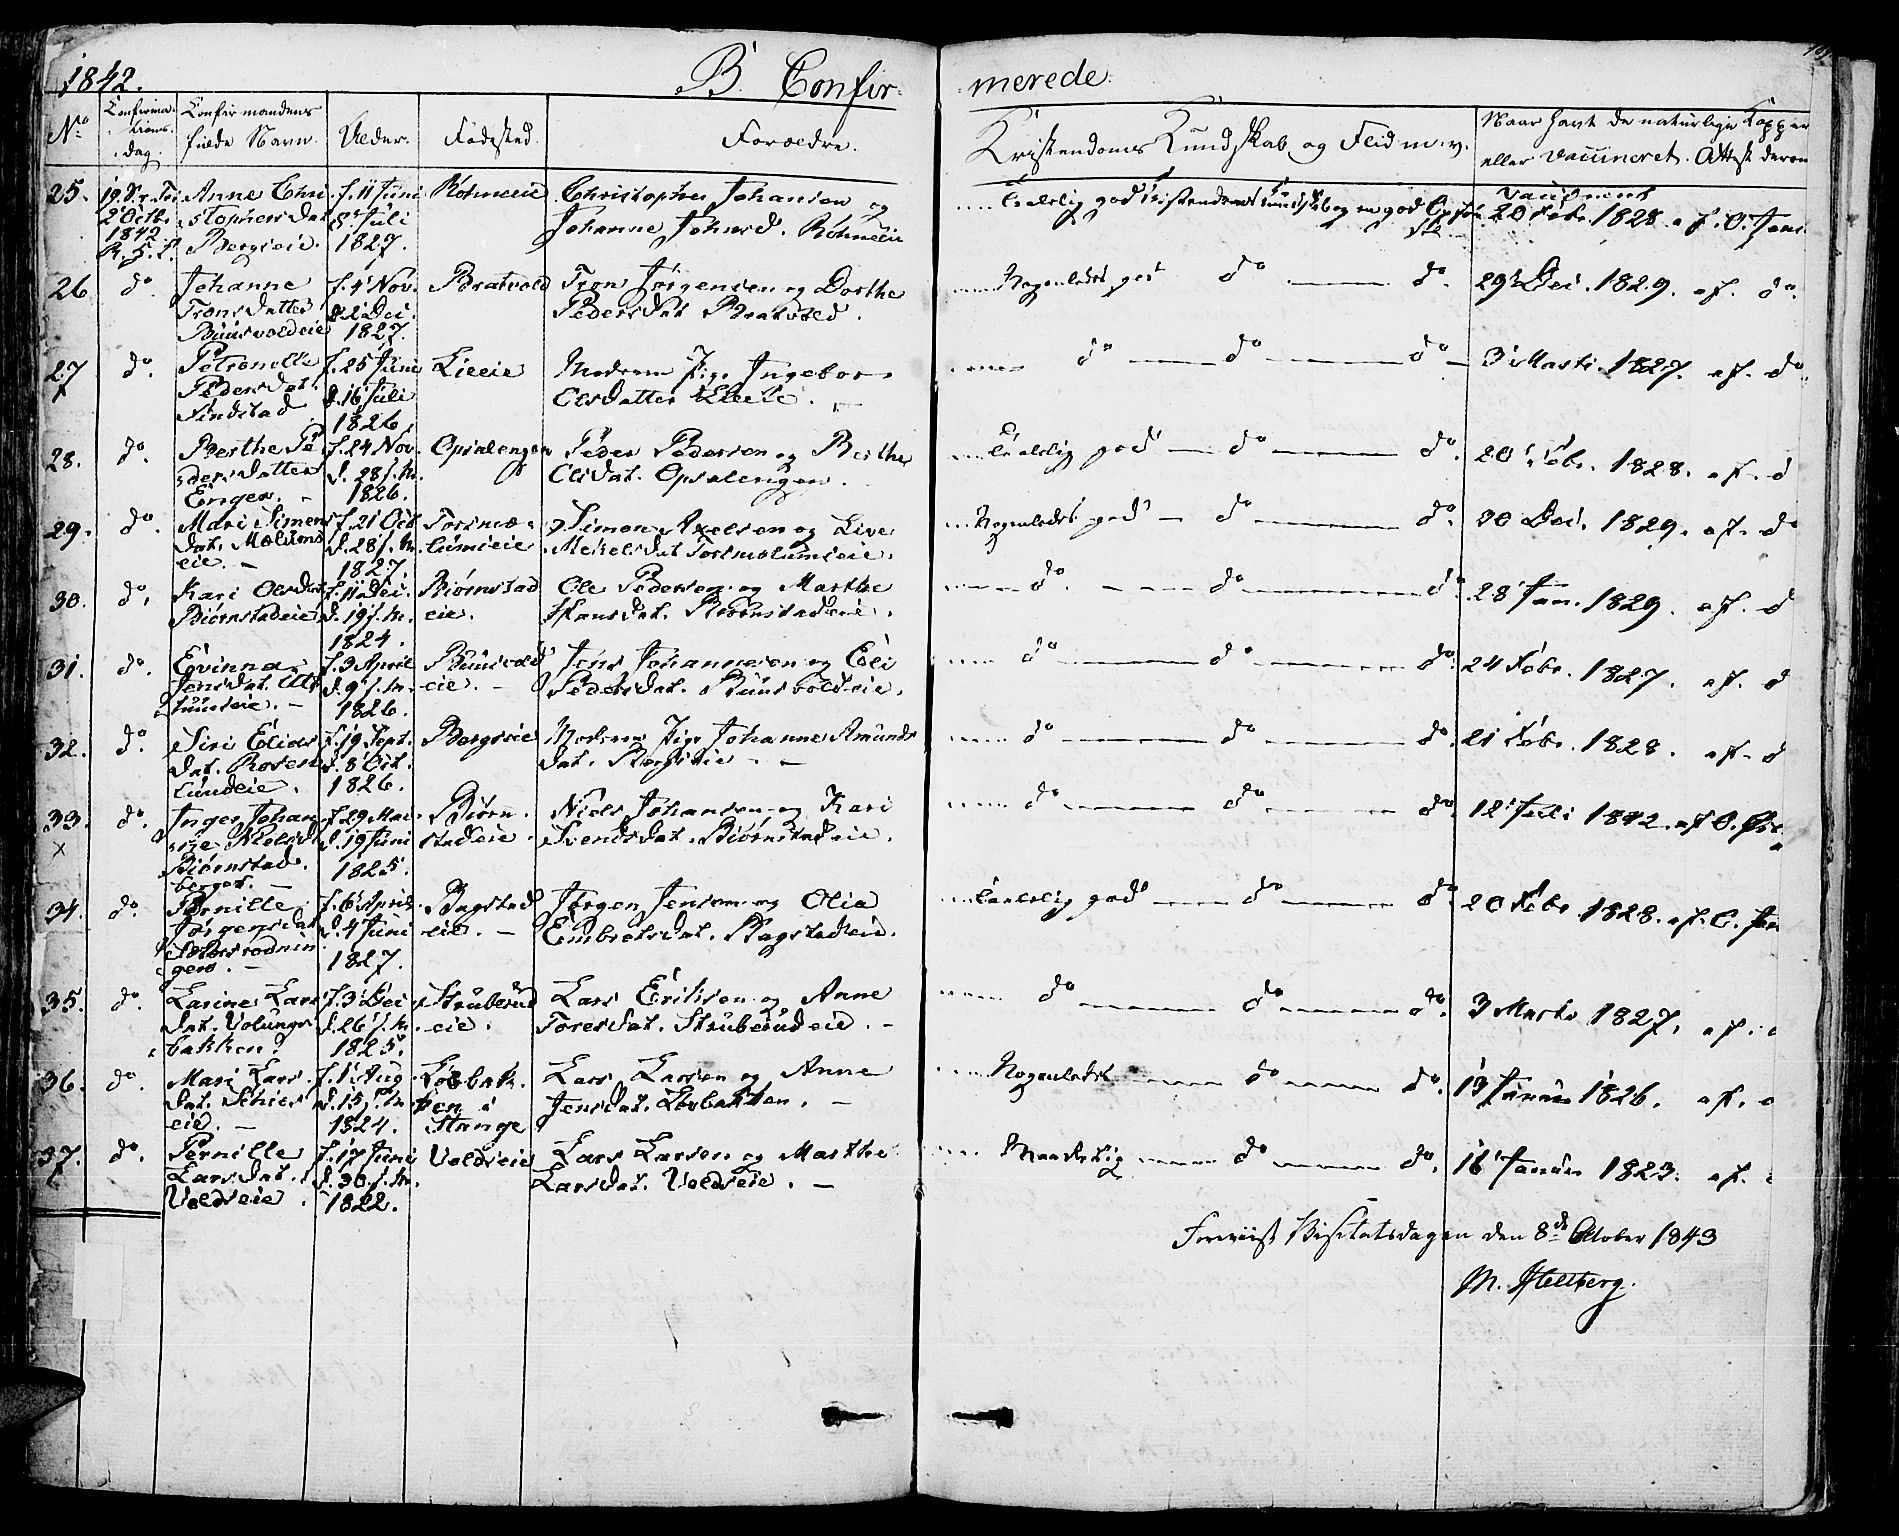 1842.
B. Confir-
merede.
No
Confirma-
tions-
dag.
Confirmandens
fulde Navn.
Alder.
Fødested.
Forældre.
Kristendoms Kundskab og Flid m. v.
Naar havt de naturlige Kopper
eller vaccineret. Attest derom
25.
2 Octb.
1842
Anne Chri
stophersdat
Bergseie.
f. 11 Juni
8 Juli
1827.
Christopher Johansen og
Johanne Johnsd.
god Kristendoms Kundskab og en god
Vaccineret
20 Febr. 1828. af. O. Jans
26
do.
Johanne
Tronsdatter
Buusvoldeie
f. 4 Nov.
d. 2 Dei.
1827.
Bratvold
Tron Jørgensen og Dorthe
Pedersdat Bratvold.
Nogenledes god do — do.
29 Dei. 1829. af. do.
27
do.
Petronelle
Pedersdat.
Findstad
f. 25 Juni
d. 16 Juli
1826.
Lieeie
Moderen Pige Ingebor
Olsdatter Lieeie.
do — do — do —
3 Marts. 1827. af. do
28.
do.
Berthe Pe
dersdatter
Engen. -
f. 24 Nov.
d. 28 s. M.
1826.
Opsalengen
Peder Pedersen og Berthe
Olsdat. Opsalengen.
god — do — do.
20 Febr. 1828. af. d
29.
do.
Mari Simens
dat. Mælums
eie. -
f. 21 Oct
d. 28 s. M.
1827.
Torsmæ-
lumseie
Simon Axelsen og Live
Mekelsdat Torsmælumseie.
Nogenledes god — do — do.
30 Dei. 1829. af. do
30.
do.
Kari Olsdat
Biørnstadeie
f. 11 Dei.
d. 19 s. M.
1824.
Biørnstad
eie.
Ole Pedersen og Marthe
Hansdat. Biørnstadeie.
do. — do — do
28 Jan. 1829. af. d
31.
do.
Evinna
Jensdat.
f. 3 April
d. 9 s. M.
1826.
Buusvold
eie. -
Jens Johannesen og Eli
Pedersdat. Buusvoldeie.
do — do — do.
24 Febr. 1827. af. d
32.
do.
Siri Elias
dat. Rosen
lundeie.
f. 19 Sept.
d. 8 Oct.
1826.
Bergseie
Moderen Pige Johanne Amunds
dat. Bergseie -
do — do — do.
21 Febr. 1828. af. d
33.
x
do.
Inger Johan
ne Nielsd
Biørnstad
berget. -
f. 29 Mai
d. 19 Juni
1825.
Biørn-
stadeie.
Niels Johansen og Kari
Svendsdat. Biørnstadeie.
do — do — do.
12 Juli 1842. af O.
34.
do.
Pernille
Jørgensdat
gen. -
f. 6 April
d. 4 Juni
1827.
Bagstad
eie. -
Jørgen Jensen og Olia
Embretsdat. Bagstadeie.
god — do — do.
20 Febr. 1828. af. O. Jan
35.
do.
Larine Lars
dat. Volungs
bakken.
f. 3 Dei
d. 26 s. M.
1825.
Struberud
eie.
Lars Eriksen og Anne
Toresdat. Struberudeie. -
do — do — do.
3 Marts 1827. af.
36.
do.
Mari Lars
dat. Schies
eie. -
f. 1 Aug
d. 15 s. M
1824.
Løbbak-
ken i
Stange
Lars Larsen og Anne
Jensdat. Løbbakken. -
Nogenledes — do — do.
19 Januar 1826. af.
37.
do.
Pernille
Larsdat.
Voldseie.
f. 17 Juni
d. 30 s. M.
1822.
Voldseie
Lars Larsen og Marthe
Larsdat. Voldseie. -
Maadelig — do — do.
16 Januar 1823. af.
Foreviist Visitatsdagen den 8de October 1843
M. Hellberg.